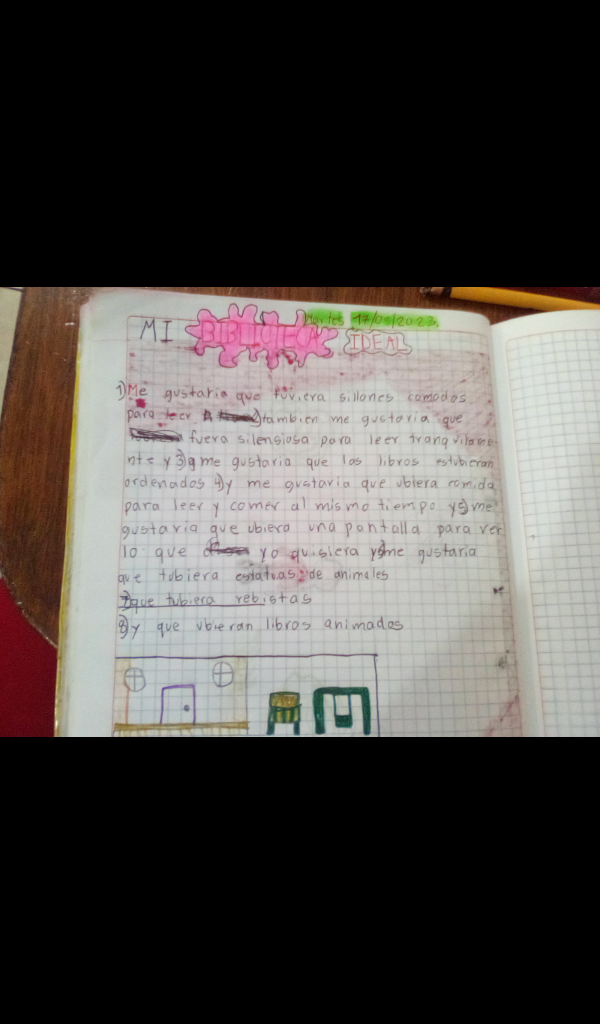 Martes 17/01/2023.
MI BIBLIOTECA IDEAL
1) Me gustaria que tuviera sillones comodos
para leer 2) tambien me gustaria que
fuera silensiosa para leer tranquilame
nte y 3) q me gustaria que los libros estubieran
ordenados 4) y me gustaria que ubiera comida
para leer y comer al mismo tiempo y 5) me
gustaria que ubiera una pantalla para ver
lo que yo quisiera y 6) me gustaria
que tubiera estatuas de animales
7) que tubiera rebistas
8) y que ubieran libros animados